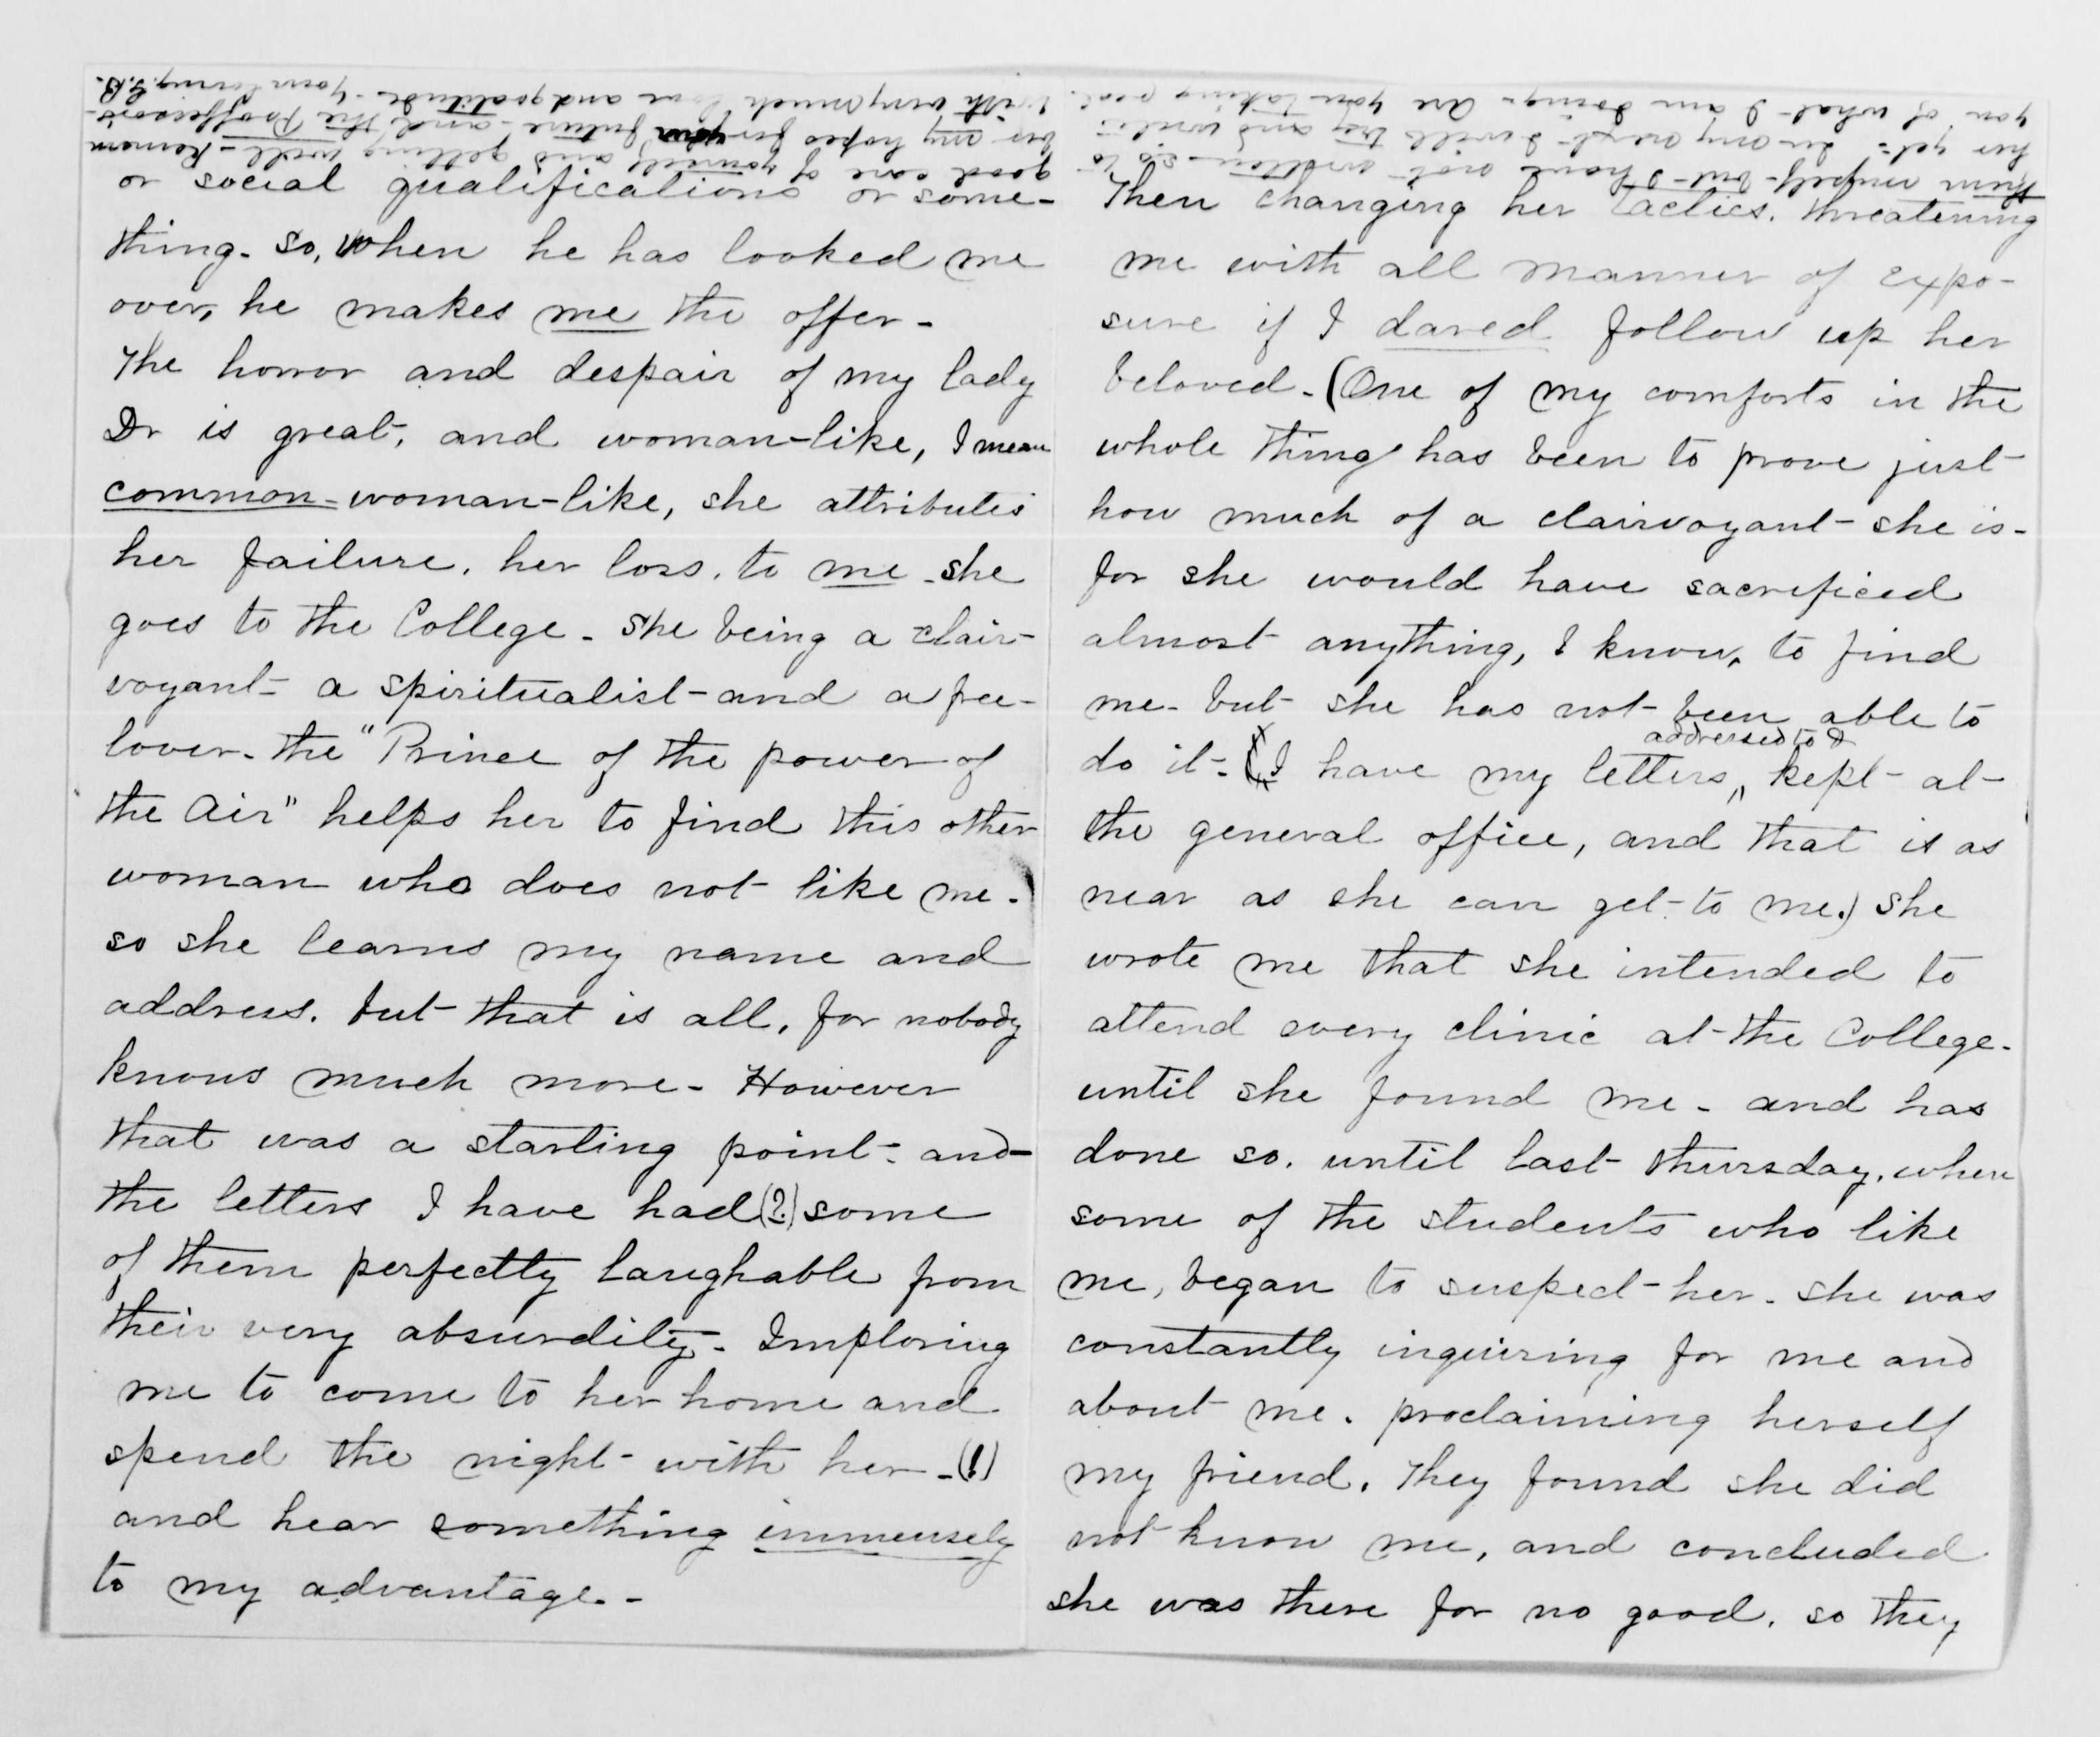 or social qualifications or some-
thing. so, when he has looked me
over, he makes me the offer -
The horror and despair of my lady
Dr is great, and woman-like, I mean
common-woman-like, she attributes
her failure, her loss, to me - she
goes to the College - She being a clair-
voyant - a spiritualist - and a free-
lover - the "Prince of the power of
the Air" helps her to find this other
woman who does not like me.
so she learns my name and
address. but that is all, for nobody
knows much more - However
that was a starting point - and
the letters I have had (?) some
of them perfectly laughable from
their very absurdity - Imploring
me to come to her home and
spend the night with her - (!)
and hear something immensely
to my advantage. -
Then changing her tactics. threatening
me with all manner of expo-
sure if I dared follow up her
beloved - (One of my comforts in the
whole thing has been to prove just
how much of a clairvoyant she is -
for she would have sacrificed
almost anything, I know, to find
me - but she has not been able to
do it - I have my letters, addressed to D kept at
the general office, and that is as
near as she can get to me.) She
wrote me that she intended to
attend every clinic at the College -
until she found me - and has
done so. until last Thursday, when
some of the students who like
me, began to suspect her. She was
constantly inquiring for me and
about me. proclaiming herself
my friend. They found she did
not know me, and concluded
she was there for no good. so they
them myself - but I have not written so to
her yet - In my next I will try and write
you of what I am doing - Are you taking good
good care of yourself and getting well - Remem
ber my hopes for your future - and "the Proffessors -
With very much love and gratitude - Your loving. J.B.